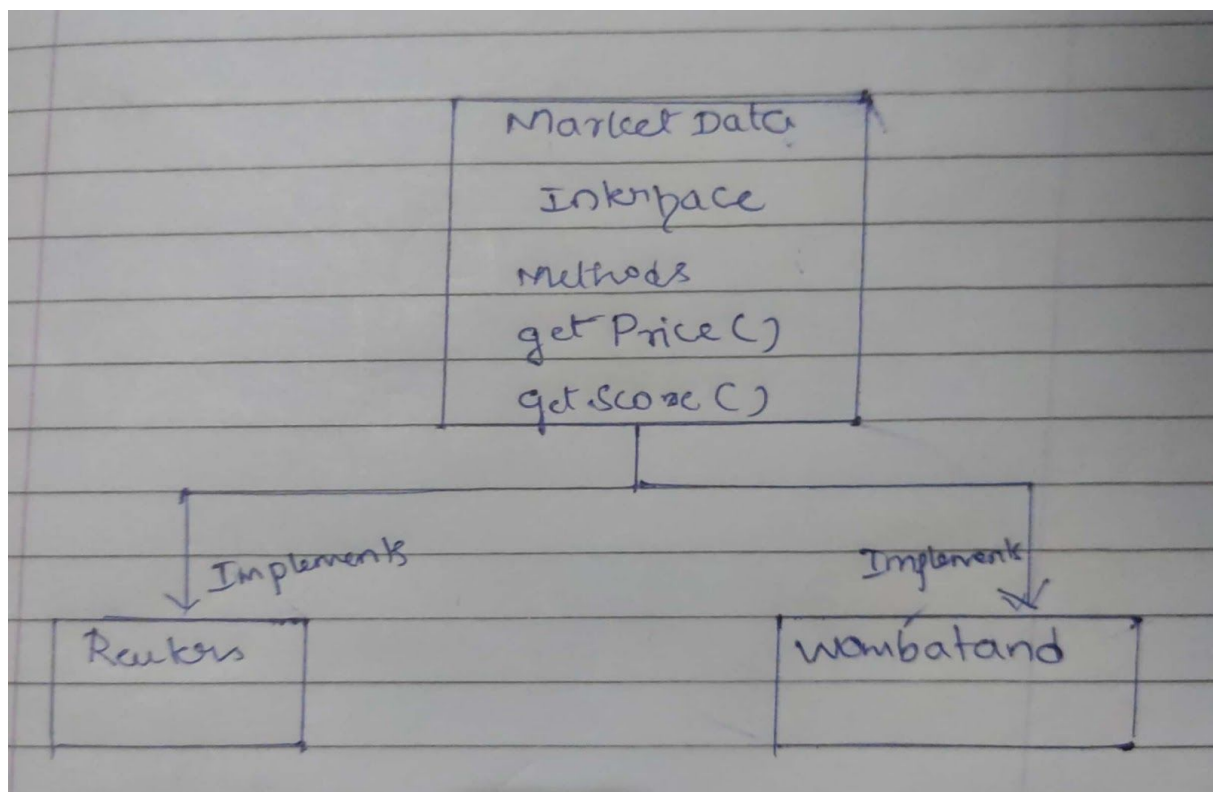 Market Data
Interface
Methods
getPrice()
getScore()
Implements
Implements
Reuters
Wombatand